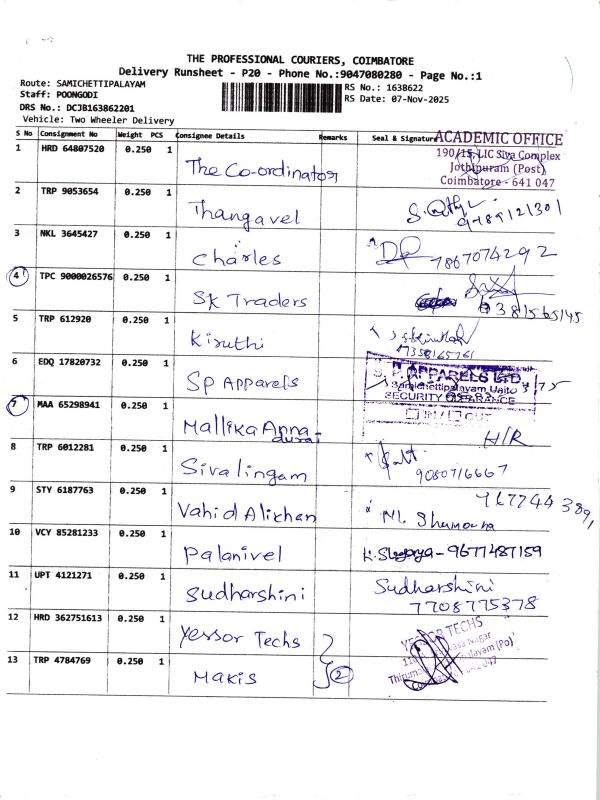 THE PROFESSIONAL COURIERS, COIMBATORE
Delivery Runsheet - P20 - Phone No.:9047080280 - Page No.:1
Route: SAMICHETTIPALAYAM
Staff: POONGODI
DRS No.: DCJB163862201
Vehicle: Two Wheeler Delivery
RS No.: 1638622
RS Date: 07-Nov-2025
S No Consignment No Weight PCS Consignee Details Remarks Seal & Signature
1 HRD 64807520 0.250 1 The Co-ordinator
ACADEMIC OFFICE
190/15, LIC Siva Complex
Jothipuram (Post)
Coimbatore - 641 047
2 TRP 9053654 0.250 1 Thangavel
9789121301
3 NKL 3645427 0.250 1 Charles
7867074292
4 TPC 9000026576 0.250 1 SK Traders
5 TRP 612920 0.250 1 Kiruthi
6 EDQ 17820732 0.250 1 SP Apparels
S. P. APPARELS LTD
Samichettipalayam Unit
SECURITY CLEARANCE
IN / OUT
7 MAA 65298941 0.250 1 Mallika Anna
durai
H/R
8 TRP 6012281 0.250 1 Sivalingam
9080716667
9 STY 6187763 0.250 1 Vahid Alikhan
10 VCY 85281233 0.250 1 Palanivel
9677487159
11 UPT 4121271 0.250 1 Sudharshini
Sudharshini
7708775378
12 HRD 362751613 0.250 1 Yessor Techs
YESSOR TECHS
13 TRP 4784769 0.250 1 Makis 2